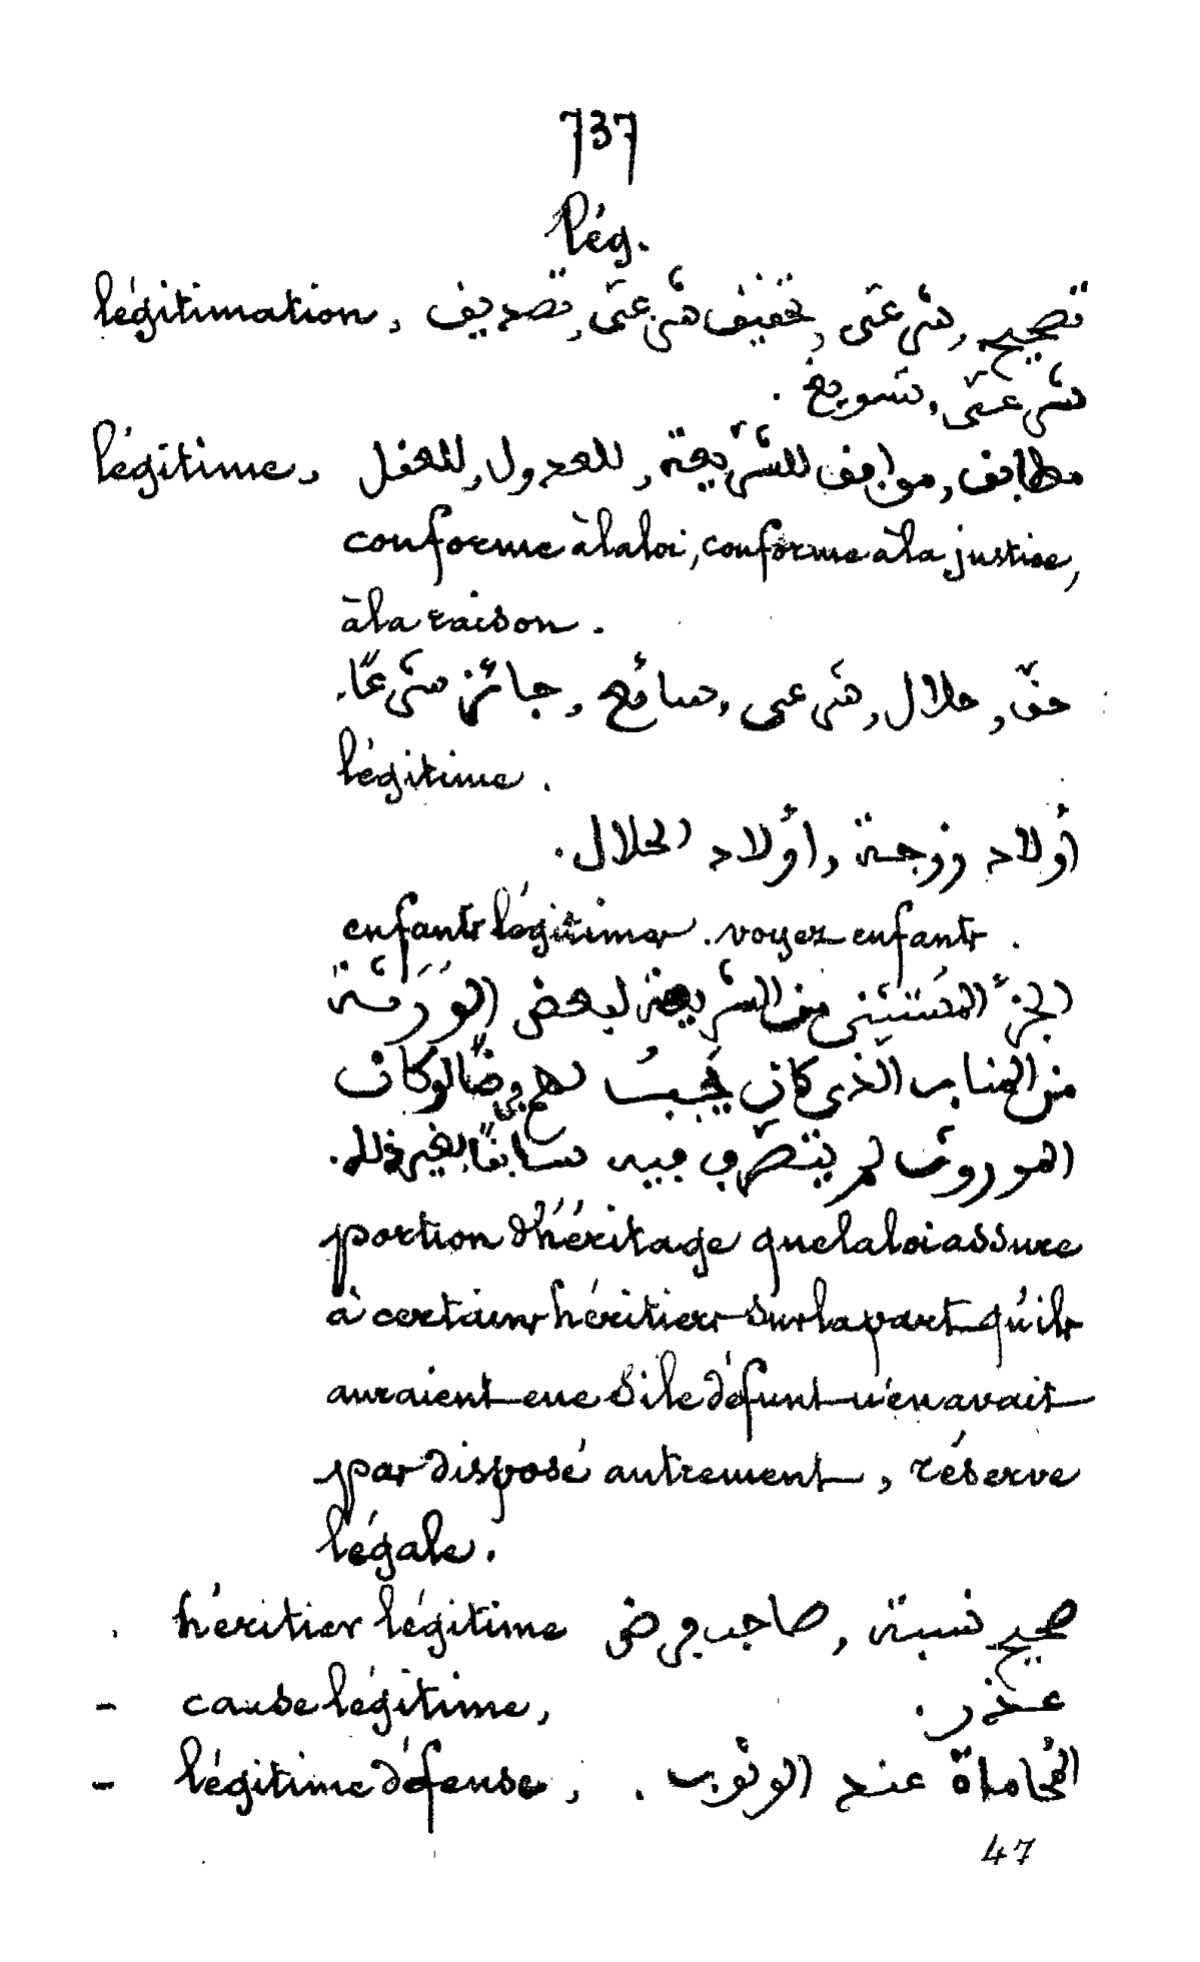 737
lég.
légitimation, تصحيح, شرعتى, تحقيق شرعتى, تصديق
شرعتى, تسويغ.
légitime, مطابق, موافق للشريعة, للعدول, للعقل
conforme à la loi, conforme à la justice,
à la raison.
حقّ, حلال, شرعى, سائغ, جائز شرعًا.
légitime.
أولاد زوجة, أولاد الحلال.
enfants légitimes. voyez enfants.
الجزء المستثنى من الشريعة لبعض الوَرَثة
من المناب الّذى كان يجبُ لهم فرضًا لو كان
الموروث لم يتصرّف فيه سابقًا بغير ذلك.
portion d'héritage que la loi assure
à certains héritiers sur la part qu'ils
auraient eue si le défunt n'en avait
pas disposé autrement, réserve
légale.
héritier légitime صحيح نسبة, صاحب فرض.
- cause légitime, عذر.
- légitime défense, المُحاماة عند الوثوب.
47